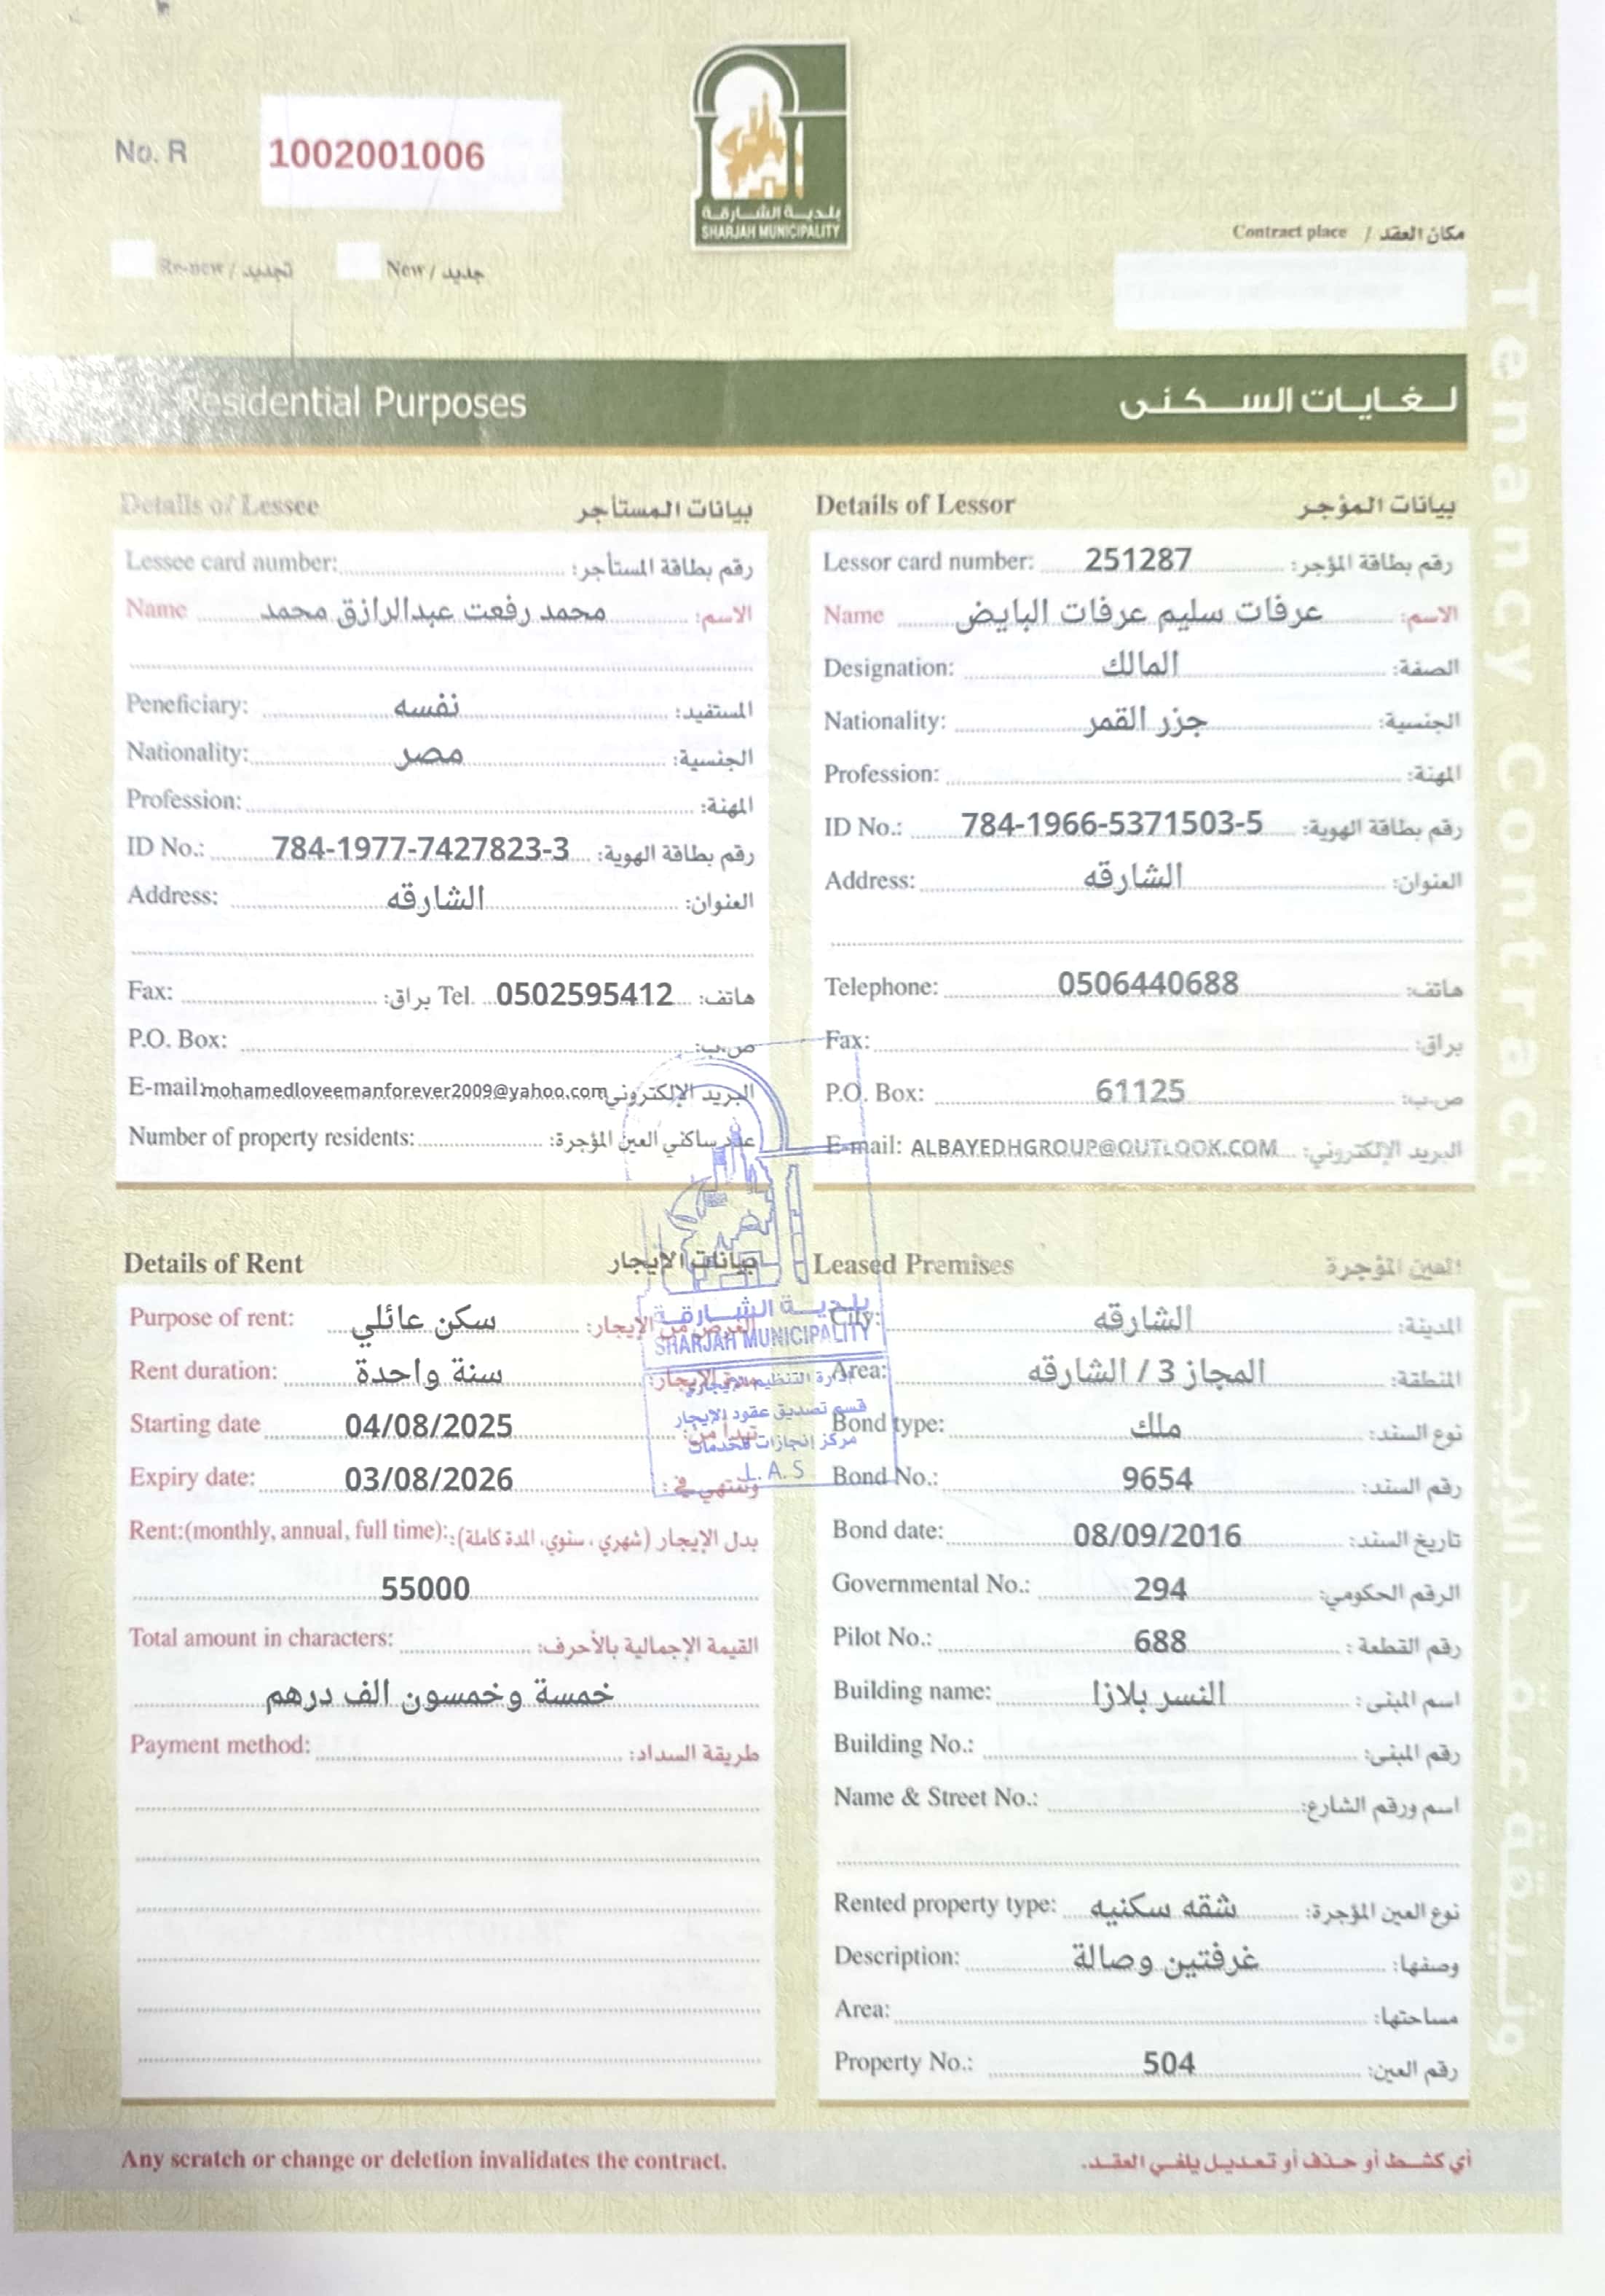 No. R 1002001006
بلدية الشارقة
SHARJAH MUNICIPALITY
Re-new / تجديد New / جديد
Contract place / مكان العقد
Residential Purposes لغايات السكنى
Tenancy Contract
Details of Lessee بيانات المستأجر
Lessee card number: رقم بطاقة المستأجر:
Name محمد رفعت عبدالرازق محمد الاسم:
Peneficiary: نفسه المستفيد:
Nationality: مصر الجنسية:
Profession: المهنة:
ID No.: 784-1977-7427823-3 رقم بطاقة الهوية:
Address: الشارقه العنوان:
Fax: براق: Tel. 0502595412 هاتف:
P.O. Box: ص.ب:
E-mail: mohamedloveemanforever2009@yahoo.com البريد الإلكتروني
Number of property residents: عدد ساكني العين المؤجرة:
Details of Lessor بيانات المؤجر
Lessor card number: 251287 رقم بطاقة المؤجر:
Name عرفات سليم عرفات البايض الاسم:
Designation: المالك الصفة:
Nationality: جزر القمر الجنسية:
Profession: المهنة:
ID No.: 784-1966-5371503-5 رقم بطاقة الهوية:
Address: الشارقه العنوان:
Telephone: 0506440688 هاتف:
Fax: براق:
P.O. Box: 61125 ص.ب:
E-mail: ALBAYEDHGROUP@OUTLOOK.COM البريد الإلكتروني:
Details of Rent بيانات الإيجار
Purpose of rent: سكن عائلي الغرض من الإيجار:
Rent duration: سنة واحدة مدة الإيجار:
Starting date 04/08/2025 تبدأ من:
Expiry date: 03/08/2026 وتنتهي في:
Rent:(monthly, annual, full time): بدل الإيجار (شهري، سنوي، المدة كاملة):
55000
Total amount in characters: القيمة الإجمالية بالأحرف:
خمسة وخمسون الف درهم
Payment method: طريقة السداد:
بلدية الشارقة
SHARJAH MUNICIPALITY
إدارة التنظيم الإيجاري
قسم تصديق عقود الإيجار
مركز إنجازات للخدمات
L.A.S
Leased Premises العين المؤجرة
City: الشارقه المدينة:
Area: المجاز 3 / الشارقه المنطقة:
Bond type: ملك نوع السند:
Bond No.: 9654 رقم السند:
Bond date: 08/09/2016 تاريخ السند:
Governmental No.: 294 الرقم الحكومي:
Pilot No.: 688 رقم القطعة :
Building name: النسر بلازا اسم المبنى :
Building No.: رقم المبنى:
Name & Street No.: اسم ورقم الشارع:
Rented property type: شقه سكنيه نوع العين المؤجرة:
Description: غرفتين وصالة وصفها:
Area: مساحتها:
Property No.: 504 رقم العين:
Any scratch or change or deletion invalidates the contract. أي كشط أو حذف أو تعديل يلغي العقد.